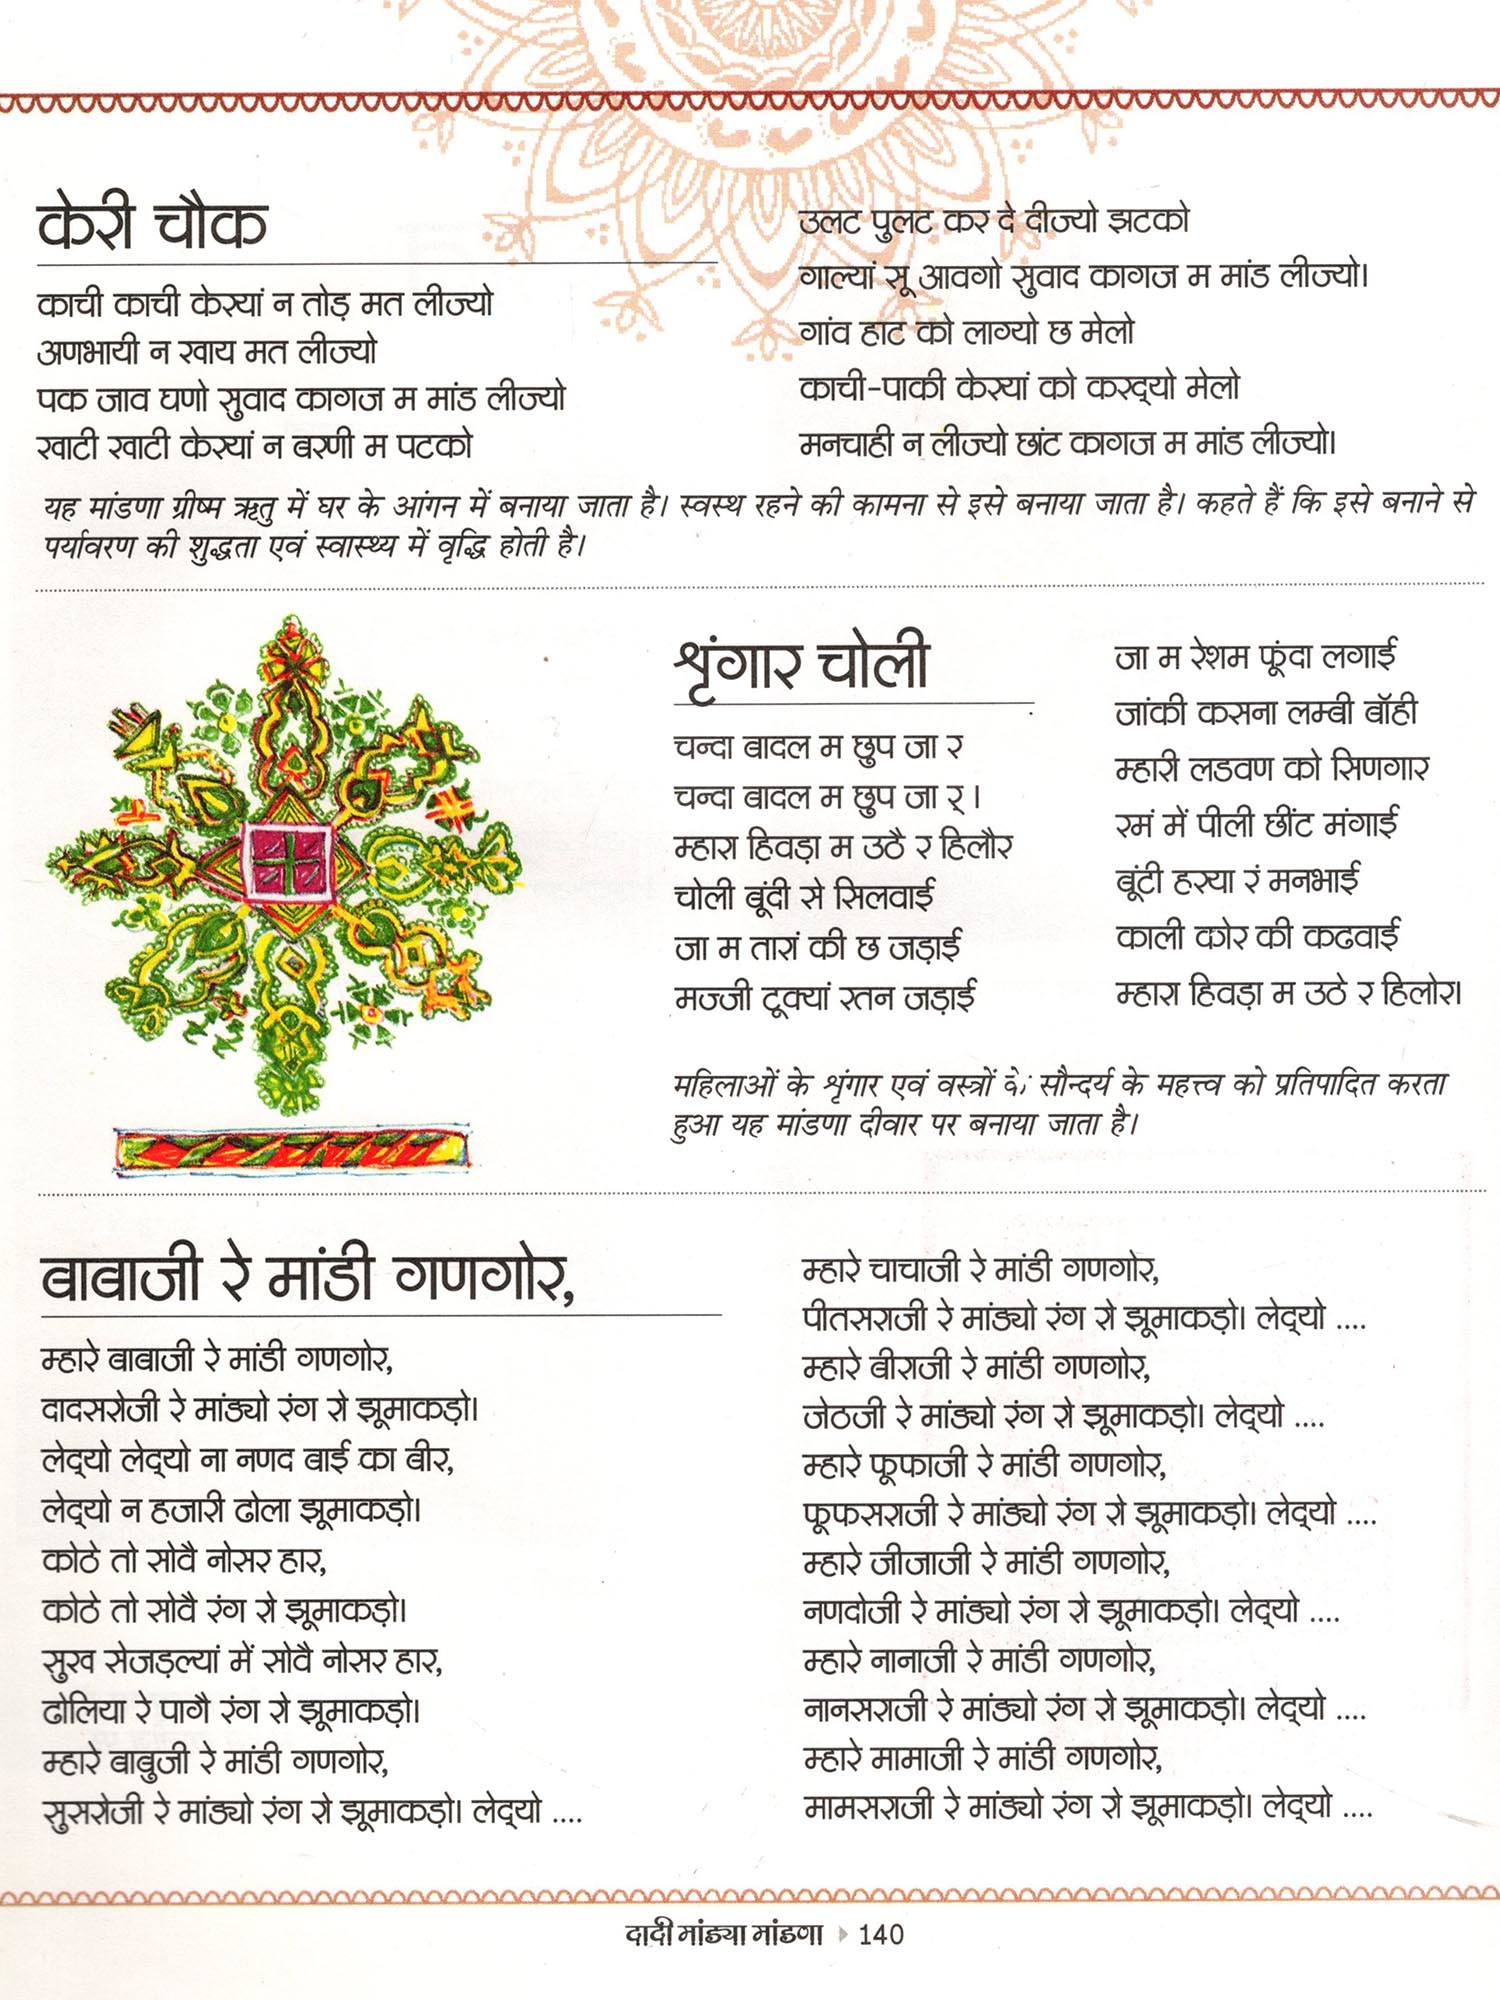 केरी चौक
काची काची केरयां न तोड़ मत लीज्यो
अणभायी न खाय मत लीज्यो
पक जाव घणो सुवाद कागज म मांड लीज्यो
खाटी खाटी केरयां न बरणी म पटको
उलट पुलट कर दे दीज्यो झटको
गाल्यां सू आवगो सुवाद कागज म मांड लीज्यो।
गांव हाट को लाग्यो छ मेलो
काची-पाकी केरयां को करद्यो मेलो
मनचाही न लीज्यो छांट कागज म मांड लीज्यो।
यह मांडणा ग्रीष्म ऋतु में घर के आंगन में बनाया जाता है। स्वस्थ रहने की कामना से इसे बनाया जाता है। कहते हैं कि इसे बनाने से
पर्यावरण की शुद्धता एवं स्वास्थ्य में वृद्धि होती है।
श्रृंगार चोली
चन्दा बादल म छुप जा र
चन्दा बादल म छुप जा र् ।
म्हारा हिवड़ा म उठै र हिलौर
चोली बूंदी से सिलवाई
जा म तारां की छ जड़ाई
मज्जी टूक्यां रतन जड़ाई
जा म रेशम फूंदा लगाई
जांकी कसना लम्बी बॉही
म्हारी लडवण को सिणगार
रमं में पीली छींट मंगाई
बूंटी हरया रं मनभाई
काली कोर की कढवाई
म्हारा हिवड़ा म उठे र हिलोर।
महिलाओं के श्रृंगार एवं वस्त्रों के सौन्दर्य के महत्त्व को प्रतिपादित करता
हुआ यह मांडणा दीवार पर बनाया जाता है।
बाबाजी रे मांडी गणगोर,
म्हारे बाबाजी रे मांडी गणगोर,
दादसरोजी रे मांड्यो रंग रो झूमाकड़ो।
लेद्यो लेद्यो ना नणद बाई का बीर,
लेद्यो न हजारी ढोला झूमाकड़ो।
कोठे तो सोवै नोसर हार,
कोठे तो सोवै रंग रो झूमाकड़ो।
सुख सेजड़ल्यां में सोवै नोसर हार,
ढोलिया रे पागै रंग रो झूमाकड़ो।
म्हारे बाबुजी रे मांडी गणगोर,
सुसरोजी रे मांड्यो रंग रो झूमाकड़ो। लेद्यो ....
म्हारे चाचाजी रे मांडी गणगोर,
पीतसराजी रे मांड्यो रंग रो झूमाकड़ो। लेद्यो ....
म्हारे बीराजी रे मांडी गणगोर,
जेठजी रे मांड्यो रंग रो झूमाकड़ो। लेद्यो ....
म्हारे फूफाजी रे मांडी गणगोर,
फूफसराजी रे मांड्यो रंग रो झूमाकड़ो। लेद्यो ....
म्हारे जीजाजी रे मांडी गणगोर,
नणदोजी रे मांड्यो रंग रो झूमाकड़ो। लेद्यो ....
म्हारे नानाजी रे मांडी गणगोर,
नानसराजी रे मांड्यो रंग रो झूमाकड़ो। लेद्यो ....
म्हारे मामाजी रे मांडी गणगोर,
मामसराजी रे मांड्यो रंग रो झूमाकड़ो। लेद्यो ....
दादी मांड्या मांडणा 140